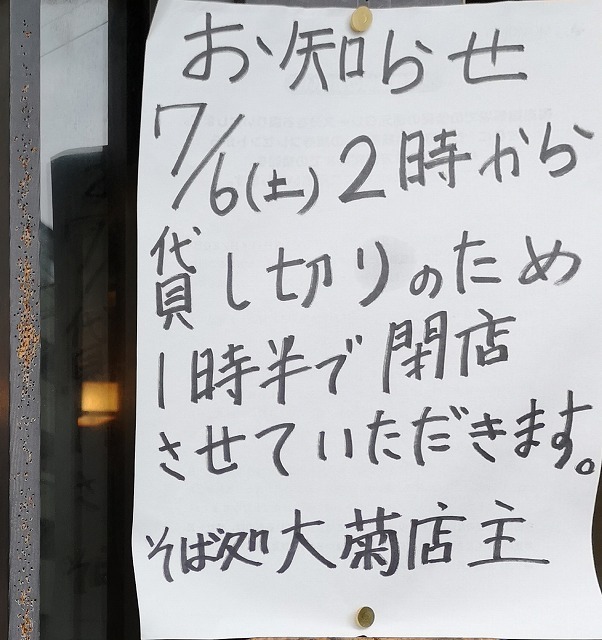 お知らせ
7/6(土)2時から
貸し切りのため
1時半で閉店
させていただきます。
そば処大菊店主